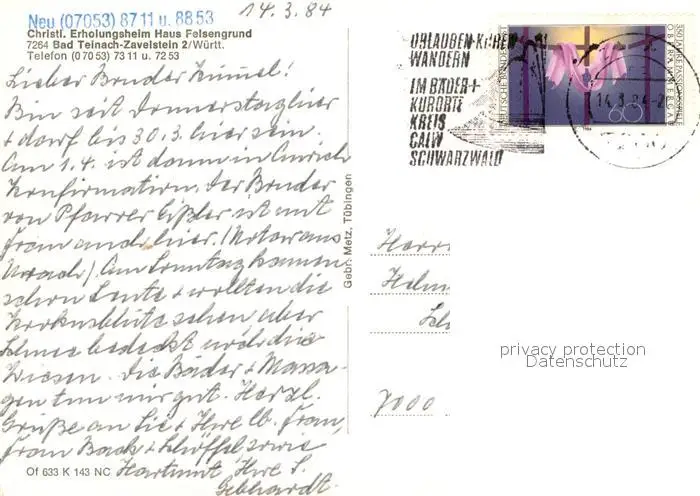 14.3.84
Neu (07053) 8711 u. 8853
Christl. Erholungsheim Haus Felsengrund
7264 Bad Teinach-Zavelstein 2/Württ.
Telefon (07053) 7311 u. 7253
Lieber Bruder Kimmel!
Bin seit Donnerstag hier
+ darf bis 30.3. hier sein.
Am 1.4. ist dann in Aurich
Konfirmation. Der Bruder
von Pfarrer Eißler ist mit
Frau auch hier. (Notar aus
Urach) Am Sonntag kamen
schon Leute + wollten die
Krokusblüte sehen aber
Schnee bedeckt die
Wiesen. Die Bäder + Massa-
gen tun mir gut. Herzl.
Grüße an Sie + Ihre lb. Frau,
Frau Back + Schöffel sowie
Hartmut Ihre S.
Gebhardt.
Of 633 K 143 NC
Gebr. Metz, Tübingen
URLAUBEN-KUREN
WANDERN
IM BÄDER +
KURORTE
KREIS
CALW
SCHWARZWALD
DEUTSCHE BUNDESPOST
350 JAHRE PASSIONSSPIELE
OBERAMMERGAU
60
1984
14.3.84
Herrn
7000
privacy protection
Datenschutz